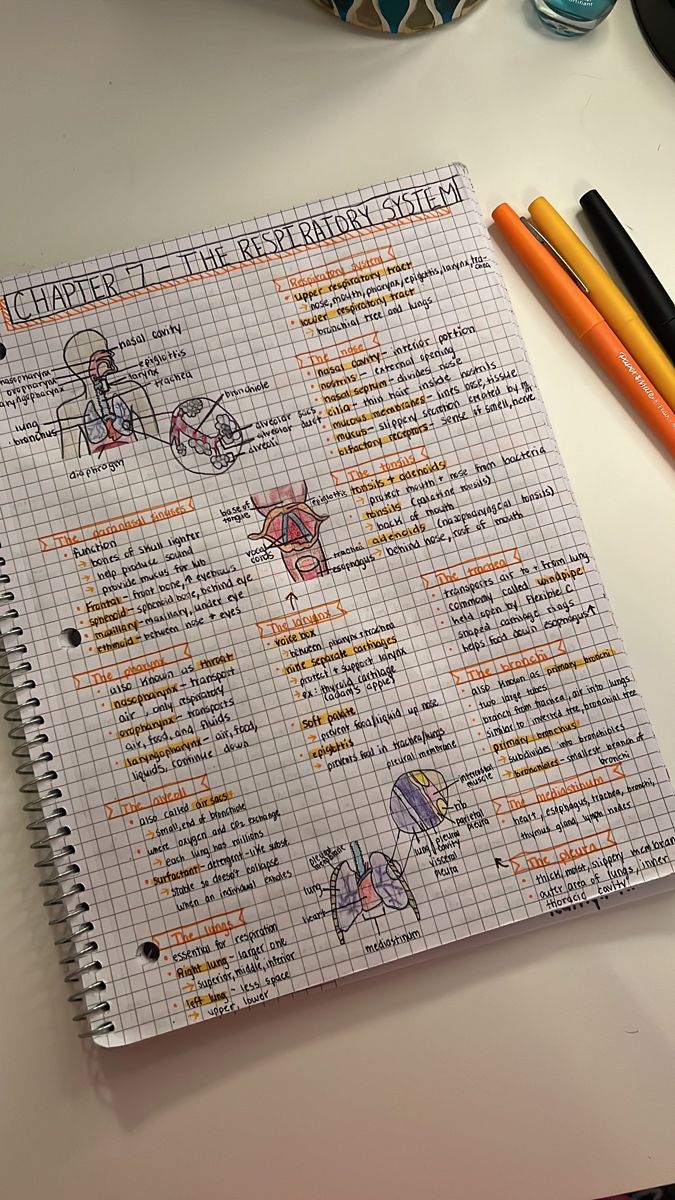 CHAPTER 7 - THE RESPIRATORY SYSTEM
nasal cavity
epiglottis
larynx
trachea
nasopharynx
oropharynx
laryngopharynx
lung
bronchus
diaphragm
bronchiole
alveolar sacs
alveolar duct
alveoli
Respiratory System
• upper respiratory tract
→ nose, mouth, pharynx, epiglottis, larynx, trachea
• lower respiratory tract
→ bronchial tree and lungs
The nose
• nasal cavity - interior portion
• nostrils - external opening
• nasal septum - divides nose
• cilia - thin hair inside nostrils
• mucous membranes - lines nose, tissue
• mucus - slippery secretion created by m.
• olfactory receptors - sense of smell, nerve
The tonsils
• tonsils + adenoids
→ protect mouth + nose from bacteria
• tonsils (palatine tonsils)
→ back of mouth
• adenoids (nasopharyngeal tonsils)
→ behind nose, roof of mouth
base of tongue
epiglottis
vocal cords
trachea
esophagus
The paranasal sinuses
• function
→ bones of skull lighter
→ help produce sound
→ provide mucus for lub
• frontal - front bone, ↑ eyebrows
• sphenoid - sphenoid bone, behind eye
• maxillary - maxillary, under eye
• ethmoid - between nose + eyes
The pharynx
• also known as throat
• nasopharynx - transport
air, only respiratory
• oropharynx - transports
air, food, and fluids
• laryngopharynx - air, food,
liquids, continue down
The alveoli
• also called air sacs
→ small, end of bronchiole
• where oxygen and CO2 exchange
→ each lung has millions
• surfactant - detergent-like subst.
→ stable so doesn't collapse
when an individual exhales
The lungs
• essential for respiration
• Right lung - larger one
→ superior, middle, inferior
• left lung - less space
→ upper, lower
The larynx
• voice box
→ between pharynx + trachea
• nine separate cartilages
→ protect + support larynx
→ ex: thyroid cartilage
(adam's apple)
• soft palate
→ prevent food/liquid up nose
• epiglottis
→ prevents food in trachea/lungs
The trachea
• transports air to + from lung
• commonly called windpipe
• held open by flexible C
shaped cartilage rings
• helps food down esophagus ↑
The bronchi
• also known as primary bronchi
• two large tubes
• branch from trachea, air into lungs
• similar to inverted tree, bronchial tree
• primary bronchus
→ subdivides into bronchioles
• bronchioles - smallest branch of
bronchi
The mediastinum
• heart, esophagus, trachea, bronchi,
thymus gland, lymph nodes
The pleura
• thick, moist, slippery membran
• outer area of lungs, inner
thoracic cavity
pleural membrane
intercostal muscle
rib
parietal pleura
pleural cavity
visceral pleura
lung
pleural membrane
lung
heart
mediastinum
Paper Mate